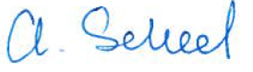 A. Scheel